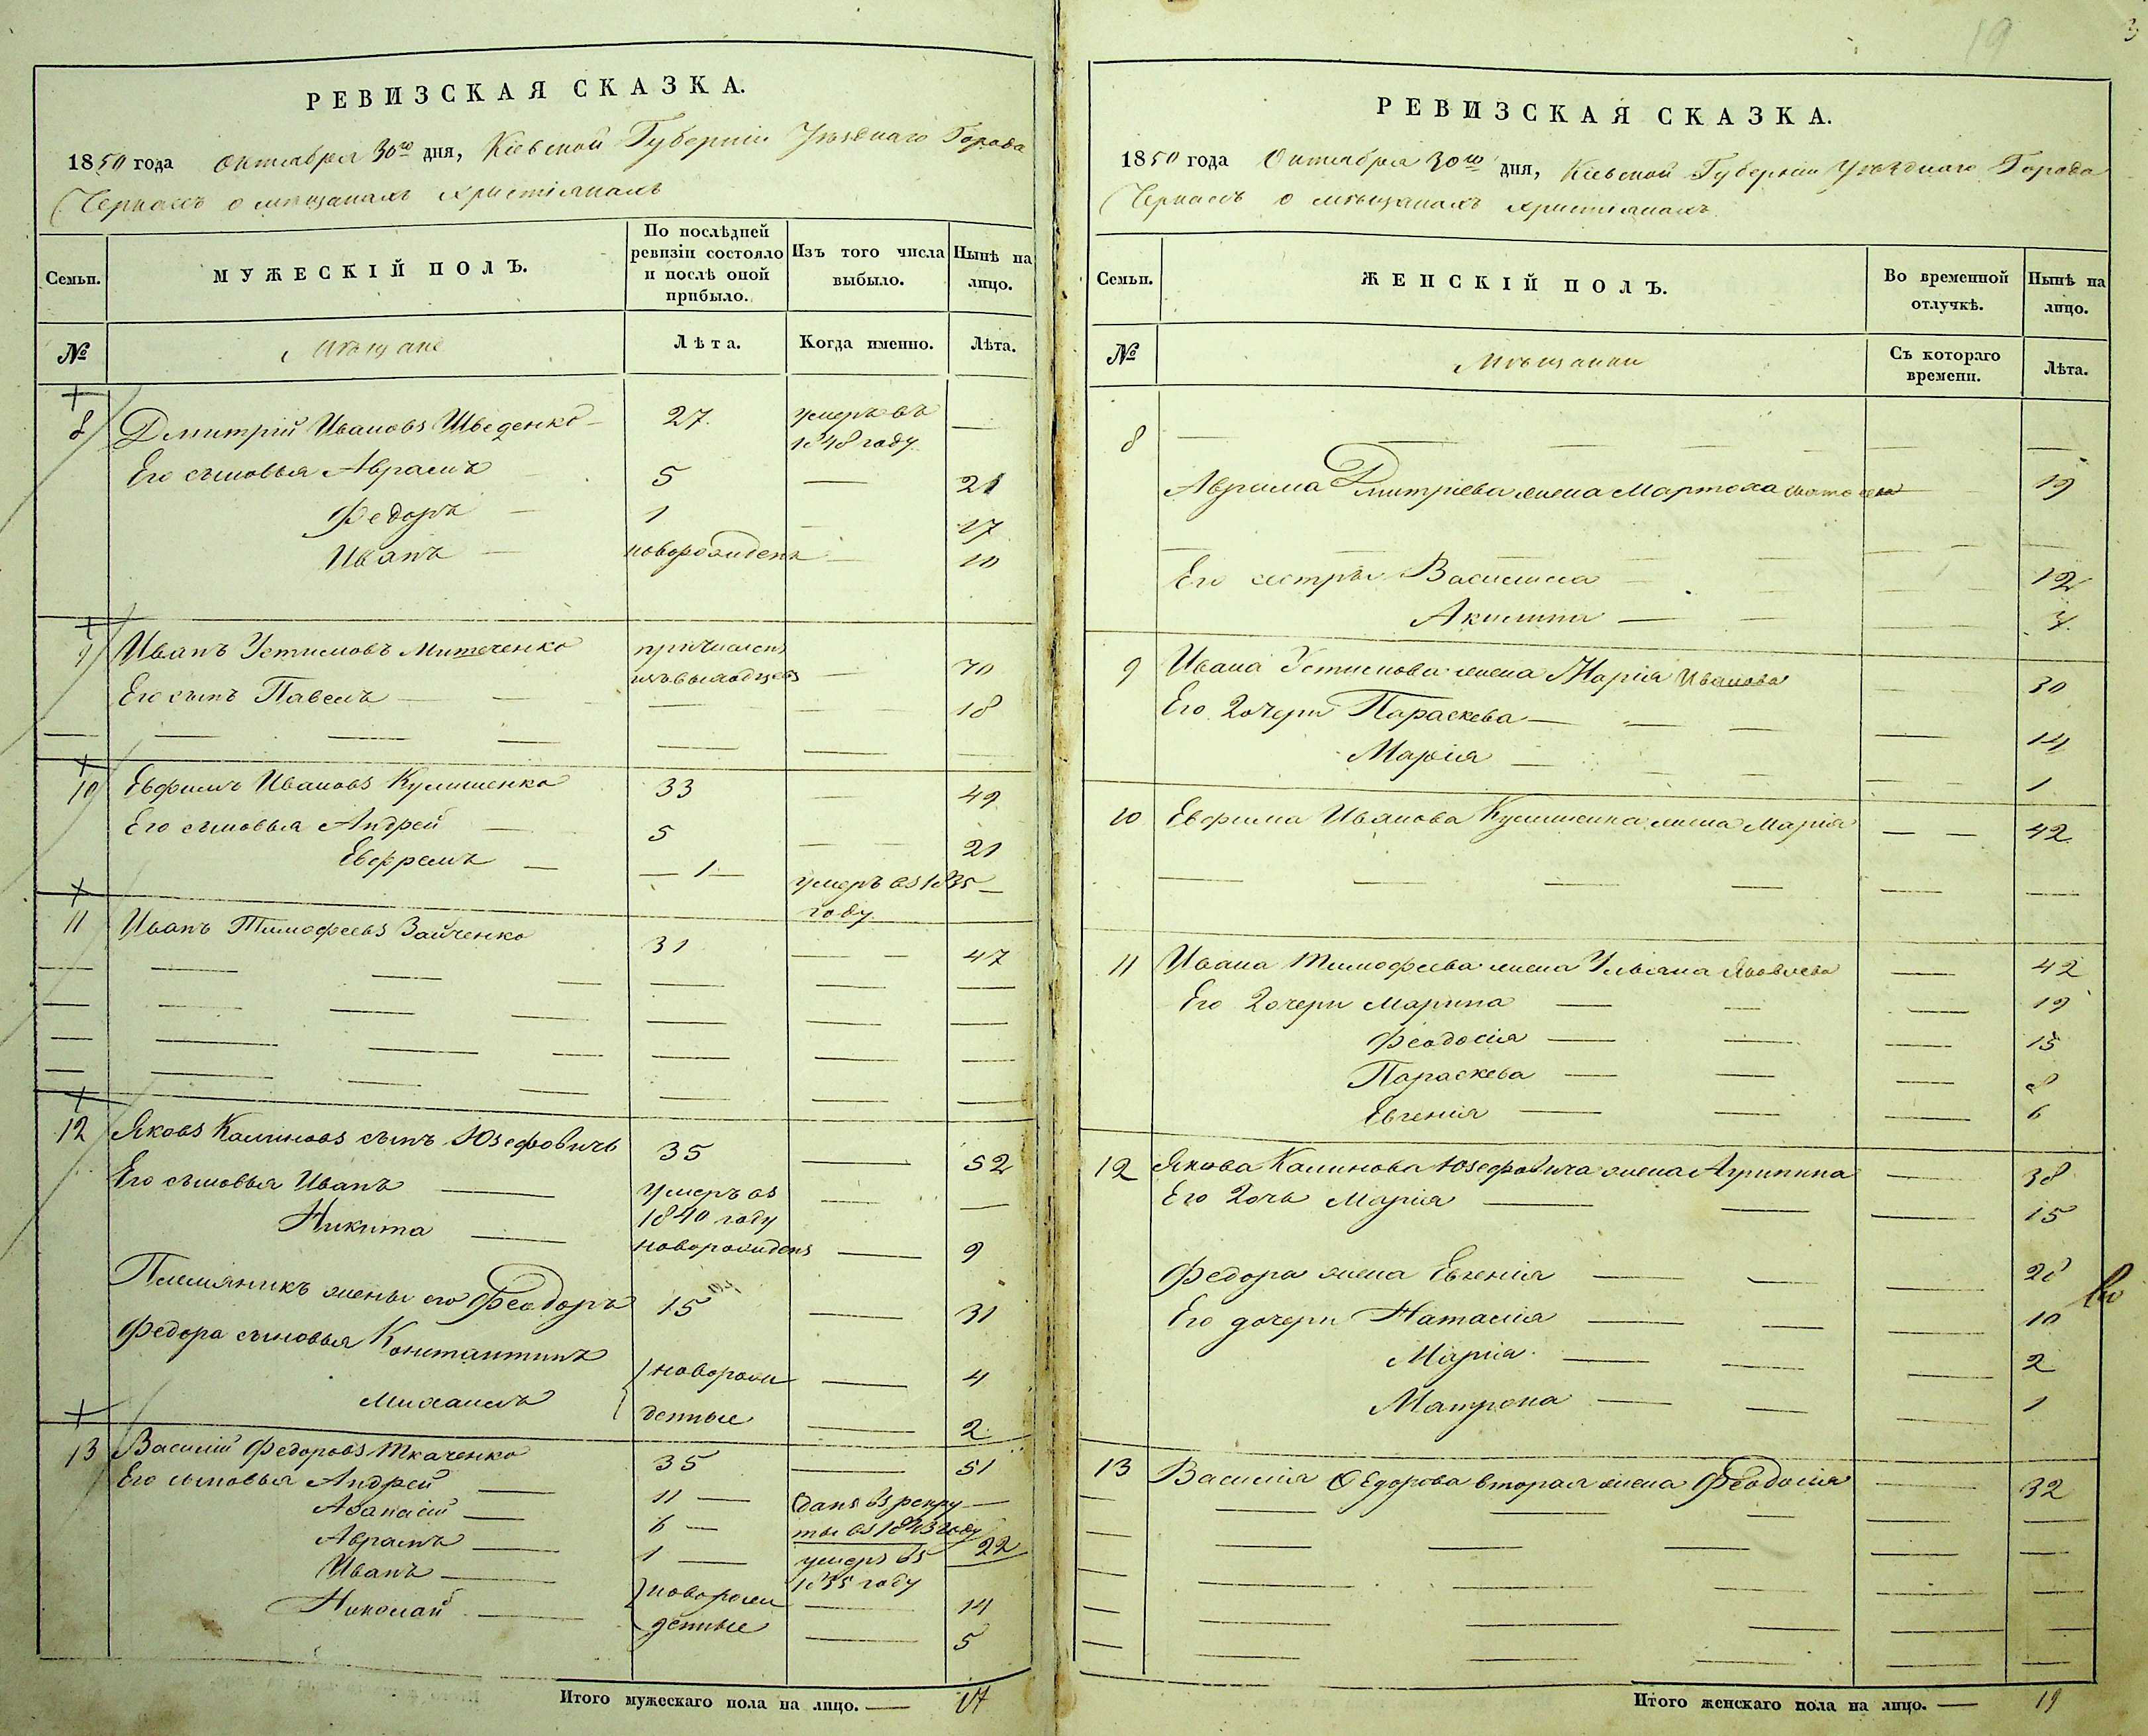 РЕВИЗСКАЯ СКАЗКА.
1850 года Октября 30го дня, Кіевской Губерніи Уѣзднаго Города
Черкасъ о мѣщанахъ христіянахъ
Семьи. МУЖЕСКІЙ ПОЛЪ. По послѣдней ревизіи состояло и послѣ оной прибыло. Изъ того числа выбыло. Нынѣ на лицо.
№ Мѣщане Лѣта. Когда именно. Лѣта.
8 Дмитрій Ивановъ Шведенко 27. умеръ въ 1848 году —
Его сыновья Аврамъ 5 — 21
Федоръ — 1 — 17
Иванъ — новорожденъ — 10
9 Иванъ Устимовъ причисленъ изъ — 70
Его сынъ Павелъ — — — 18
10 Евфимъ Ивановъ Кулишенко 33 — 49
Его сыновья Андрей — 5 — — 21
Евфремъ — — 1 — умеръ въ 1835 году —
11 Иванъ Тимофеевъ Зайченко 31 — — 47
12 Яковъ Калиновъ сынъ Юзефовичъ 35 — 52
Его сыновья Иванъ — умеръ въ 1840 году — —
Никита — новорожденъ — 9
Племяникъ жены его Феодоръ 15 — 31
Федора сыновья Константинъ } новорож — 4
Михаилъ } денные — 2
13 Василій Федоровъ Ткаченко 35 — 51
Его сыновья Андрей — 11 — Сданъ въ рекру —
Афанасій — 6 — ты въ 1843 году 22
Аврамъ — 1 — умеръ въ
Иванъ — } новорож 1835 году 14
Николай — денные — 5
Итого мужескаго пола на лицо. — 17
19
3
РЕВИЗСКАЯ СКАЗКА.
1850 года Октября 30го дня, Кіевской Губерніи Уѣзднаго Города
Черкасъ о мѣщанахъ христіянахъ
Семьи. ЖЕНСКІЙ ПОЛЪ. Во временной отлучкѣ. Нынѣ на лицо.
№ Мѣщанки Съ котораго времени. Лѣта.
8 — — — — — —
Аврама Дмитріева жена 19
Его сестры Василиса — 12
Акилина — 7
9 Ивана Устимова жена Марія Иванова — — 30
Его дочери Параскева — — — 14
Марія — — 1
10 Евфима Иванова Кулишенка жена Марія — — 42
11 Ивана Тимофеева жена Ульяна Яковлева — 42
Его дочери Марина — — — 19
Феодосія — — — 15
Параскева — — — 8
Евгенія — — — 6
12 Якова Калинова Юзефовича жена Агрипина — 38
Его дочь Марія — — — 15
Федора жена Евгенія — — — 28
Его дочери Наталія — — — 10
Марія — — — 2
Матрона — — — 1
13 Василія Федорова вторая жена Феодосія — 32
Итого женскаго пола на лицо. — 19